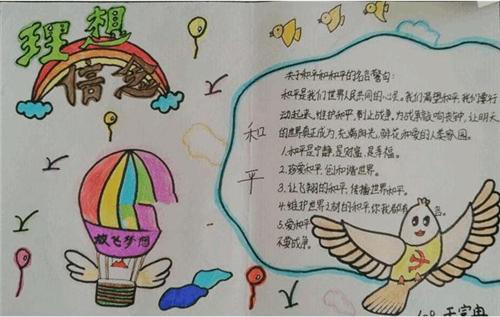 理想
信念
放飞梦想
和平
关于和平和和平的名言警句:
和平是我们世界人民共同的心灵。我们渴望和平,我们要行
动起来,维护和平,制止战争,为战争敲响丧钟,让明天
的世界真正成为,充满阳光,鲜花和爱的人类家园。
1.和平是宁静,是财富,是幸福。
2.珍爱和平,创和谐世界。
3.让飞翔的和平,传播世界和平。
4.维护世界上材的和平,你我都有
5.爱和平
不要战争。